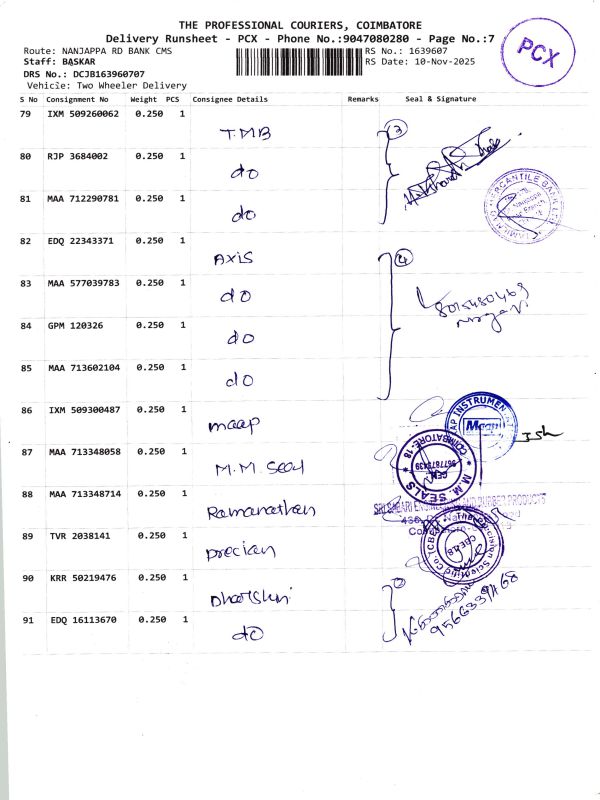 THE PROFESSIONAL COURIERS, COIMBATORE
Delivery Runsheet - PCX - Phone No.:9047080280 - Page No.:7
Route: NANJAPPA RD BANK CMS
RS No.: 1639607
Staff: BASKAR
RS Date: 10-Nov-2025
DRS No.: DCJB163960707
Vehicle: Two Wheeler Delivery
PCX
S No Consignment No Weight PCS Consignee Details Remarks Seal & Signature
79 IXM 509260062 0.250 1 T.M.B 3
80 RJP 3684002 0.250 1 do
81 MAA 712290781 0.250 1 do
MERCANTILE BANK LTD
82 EDQ 22343371 0.250 1 AXIS 4
83 MAA 577039783 0.250 1 do
84 GPM 120326 0.250 1 do
85 MAA 713602104 0.250 1 do
86 IXM 509300487 0.250 1 maap
INSTRUMENT
Maap
87 MAA 713348058 0.250 1 M.M. Seal
COIMBATORE-18
M M SEALS
88 MAA 713348714 0.250 1 Ramanathan
RUBBER PRODUCTS
89 TVR 2038141 0.250 1 precian
Scientific Co.
90 KRR 50219476 0.250 1
91 EDQ 16113670 0.250 1 do